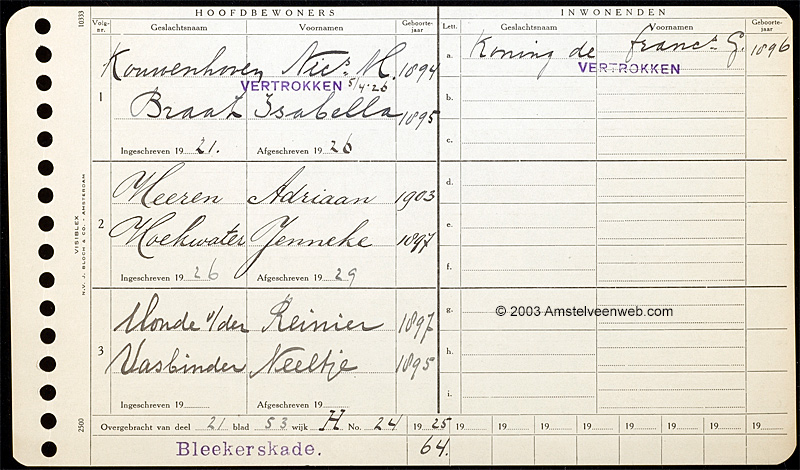 HOOFDBEWONERS
INWONENDEN
10333
Volg-nr.
Geslachtsnaam
Voornamen
Geboorte-jaar
Lett.
Geslachtsnaam
Voornamen
Geboorte-jaar
1
Kouwenhoven Nics. M. 1894
VERTROKKEN 5/4-26
Braat Isabella 1895
Ingeschreven 19 21. Afgeschreven 19 26
2
Heeren Adriaan 1903
Hoekwater Jenneke 1897
Ingeschreven 19 26 Afgeschreven 19 29
3
Monde v/der Reinier 1897
Vasbinder Neeltje 1895
Ingeschreven 19 Afgeschreven 19
a. Koning de Francs. G. 1896
VERTROKKEN
b.
c.
d.
e.
f.
g.
© 2003 Amstelveenweb.com
h.
i.
VISIBLEX
N.V. J. BLOCH & CO. - AMSTERDAM
2500
Overgebracht van deel 21 blad 53 wijk H No. 24 19 25 19 19 19 19 19 19 19 19
Bleekerskade. 64.